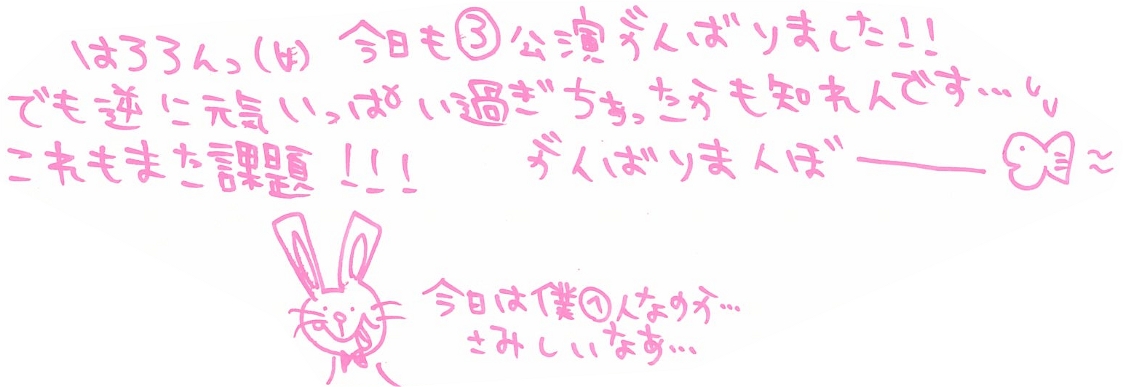 はろろんっ(・∀・) 今日も③公演がんばりました!!
でも逆に元気いっぱい過ぎちゃったかも知れんです…
これもまた課題!!! がんばりまんぼー
今日は僕①人なのか…
さみしいなあ…